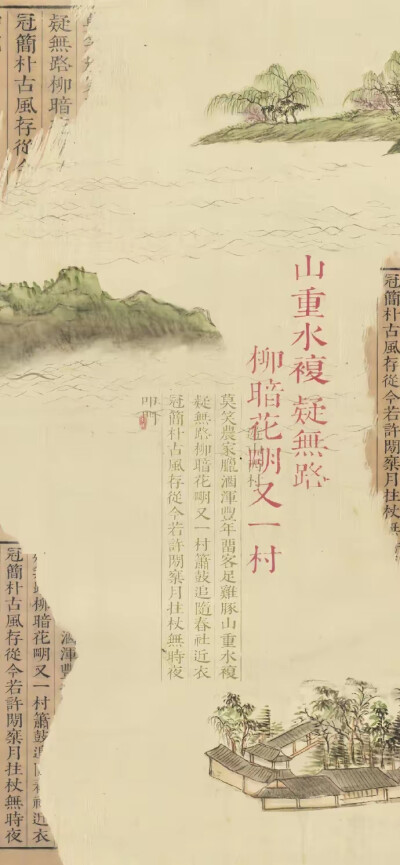 疑無路柳暗
冠簡朴古風存從今
山重水複疑無路
柳暗花明又一村
冠簡朴古風存從今若許閒乗月拄杖
莫笑農家臘酒渾豐年留客足雞豚山重水複
疑無路柳暗花明又一村簫鼓追隨春社近衣
冠簡朴古風存從今若許閒乗月拄杖無時夜
叩門
酒渾豐
柳暗花明又一村簫鼓追 社近衣
冠簡朴古風存從今若許閒乗月拄杖無時夜